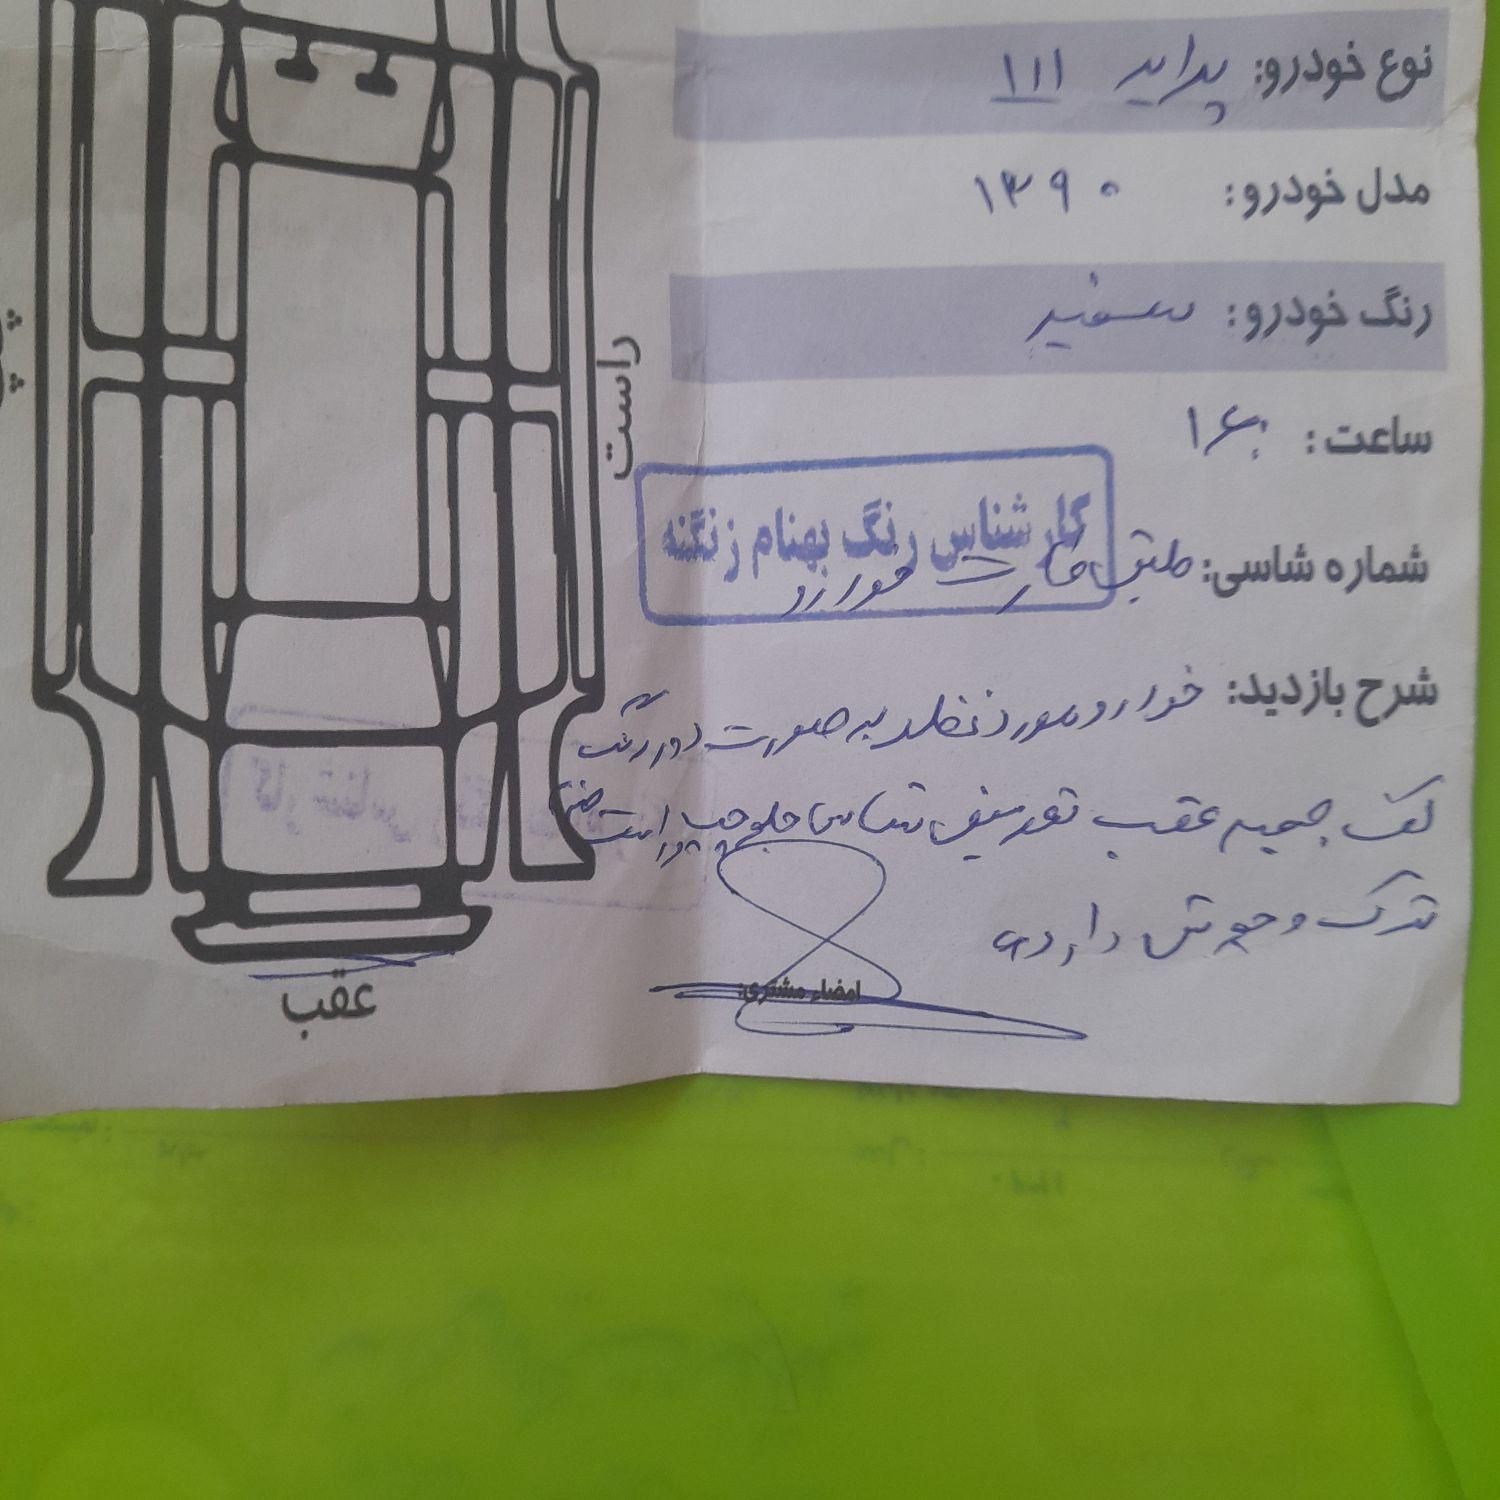 نوع خودرو: پراید ۱۱۱
مدل خودرو: ۱۳۹۰
رنگ خودرو: سفید
ساعت: ۱۶
راست
کارشناس رنگ بهنام زنگنه
شماره شاسی: طبق کارت خودرو
شرح بازدید: خودرو مورد نظر به صورت دور رنگ
کف جعبه عقب تعویض شاسی جلو چپ راست
ترک و جوش دارد
امضاء مشتری:
عقب